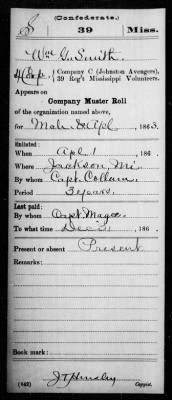 (Confederate.)
S | 39 | Miss.
Wm G. Smith
4 Corp., Company C (Johnston Avengers),
39 Reg't Mississippi Volunteers.
Appears on
Company Muster Roll
of the organization named above,
for Mch & Apl, 1863.
Enlisted:
When Apl 1, 186 .
Where Jackson, Mi
By whom Capt. Collum
Period 3 years.
Last paid:
By whom Capt. Magee
To what time Dec 31, 186 .
Present or absent Present
Remarks:
Book mark:
(642) Copyist.